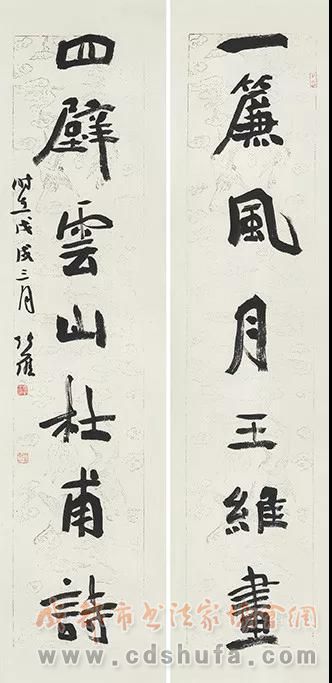 一簾風月王維畫
四壁雲山杜甫詩
时在戊戌三月
成都市书法家协会網
www.cdshufa.com